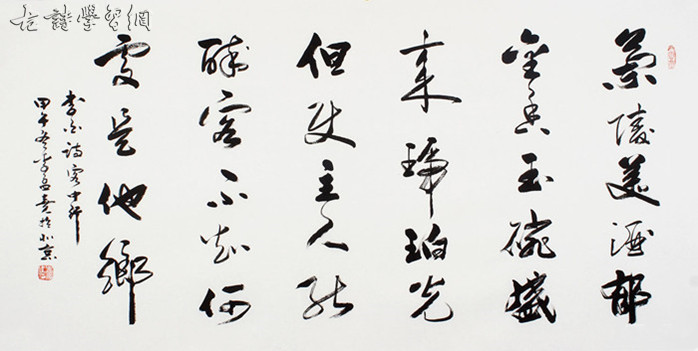 蘭陵美酒郁
金香玉碗盛
来琥珀光
但使主人能
醉客不知何
處是他鄉
李白詩客中行
甲午冬於北京
詩學習網